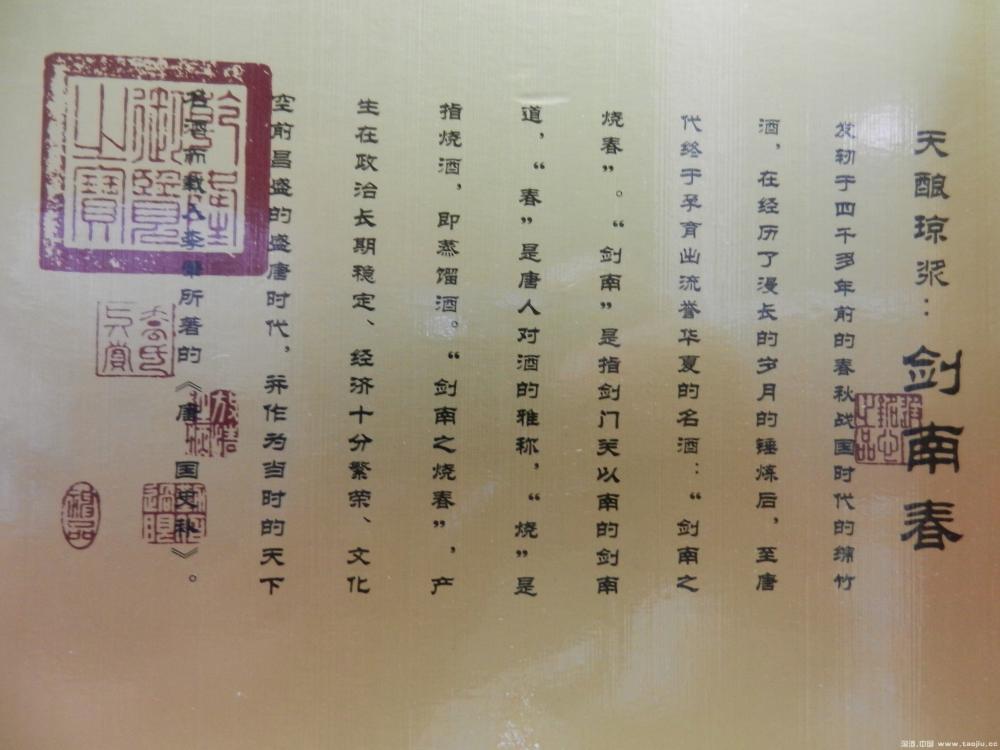 天酿琼浆：剑南春
发轫于四千多年前的春秋战国时代的绵竹
酒，在经历了漫长的岁月的锤炼后，至唐
代终于孕育出流誉华夏的名酒：“剑南之
烧春”。“剑南”是指剑门关以南的剑南
道，“春”是唐人对酒的雅称，“烧”是
指烧酒，即蒸馏酒。“剑南之烧春”，产
生在政治长期稳定、经济十分繁荣、文化
空前昌盛的盛唐时代，并作为当时的天下
名酒而载入李肇所著的《唐 国史补》。
乾隆御览之宝
神品
淘酒.中国 www.taojiu.cc